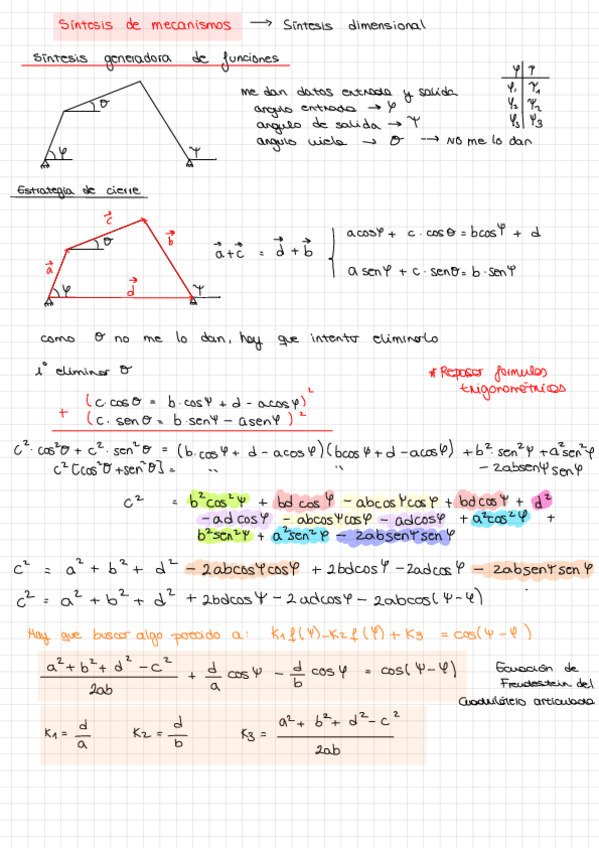 Síntesis de mecanismos → Síntesis dimensional
Síntesis generadora de funciones
me dan datos entrada y salida
angulo entrada → φ
angulo de salida → ψ
angulo biela → θ → NO me lo dan
φ ψ
φ₁ ψ₁
φ₂ ψ₂
φ₃ ψ₃
θ
φ
ψ
Estrategia de cierre
c⃗
θ
b⃗
a⃗
φ
d⃗
ψ
a⃗ + c⃗ = d⃗ + b⃗
a cosφ + c · cosθ = b cosψ + d
a senφ + c · senθ = b · senψ
como θ no me lo dan, hay que intentar eliminarlo
1° eliminar θ
* Repasar formulas trigonométricas
(c · cosθ = b · cosψ + d - a cosφ)²
+ (c · senθ = b · senψ - a senφ)²
c² · cos²θ + c² · sen²θ = (b · cosψ + d - a cosφ)(b cosψ + d - a cosφ) + b² · sen²ψ + a² sen²φ
- 2ab senψ senφ
c² [cos²θ + sen²θ] = " "
c² = b² cos²ψ + bd cosψ - ab cosψ cosφ + bd cosψ + d²
- ad cosφ - ab cosψ cosφ - ad cosφ + a² cos²φ +
b² sen²ψ + a² sen²φ - 2ab senψ senφ
c² = a² + b² + d² - 2ab cosψ cosφ + 2bd cosψ - 2ad cosφ - 2ab senψ senφ
c² = a² + b² + d² + 2bd cosψ - 2ad cosφ - 2ab cos(ψ - φ)
Hay que buscar algo parecido a: K₁ f(ψ) - K₂ f(φ) + K₃ = cos(ψ - φ)
(a² + b² + d² - c²)/2ab + d/a cosψ - d/b cosφ = cos(ψ - φ)
Ecuación de
Freudestein del
cuadrilátero articulado
K₁ = d/a K₂ = d/b K₃ = (a² + b² + d² - c²)/2ab